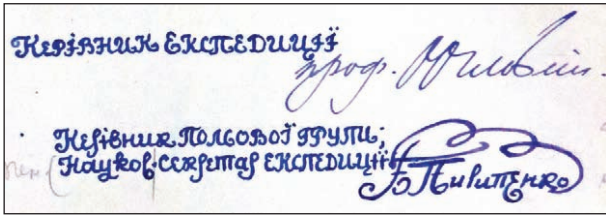 Керівник експедиції
проф.
Керівник польової групи,
Науков. секретар експедиції
Б Пилипенко